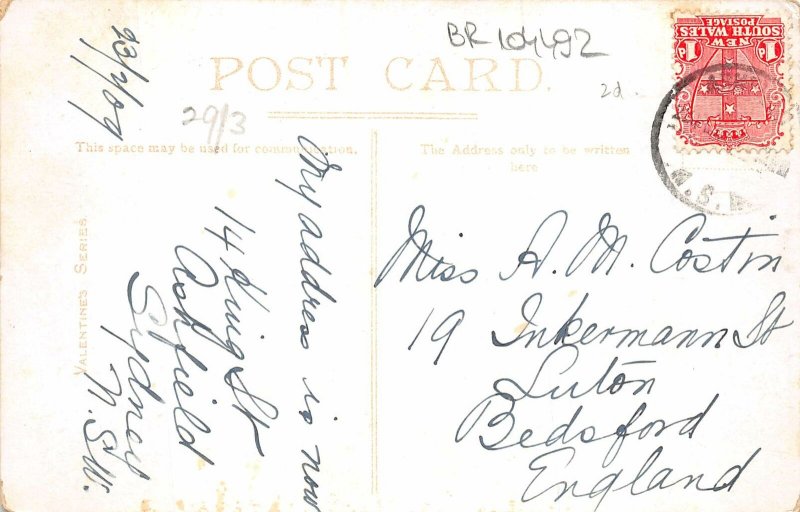 BR 104492
POST CARD.
2d.
29/3
This space may be used for communication.
The Address only to be written
here
VALENTINE'S SERIES
23/2/09
My address is now
14 King St
Ashfield
Sydney
N.S.W.
Miss A. M. Costin
19 Inkermann St
Luton
Bedsford
England
NEW
SOUTH WALES
POSTAGE
1d 1d
N.S.W